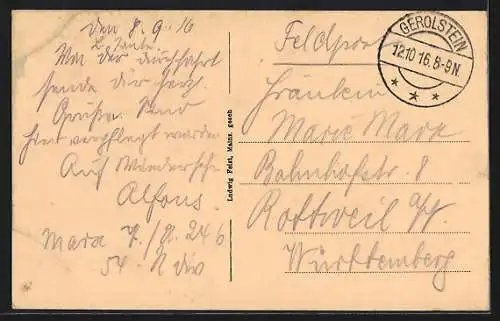 den 8.9.16
L. Tante.
Von der Durchfahrt
sende dir herzl.
Grüße. Sind
hier verpflegt worden
Auf Wiedersehn
Alfons.
Marx 7./R. 246
54. R div
Ludwig Feist, Mainz. gesch
Feldpost
GEROLSTEIN
12.10.16.8-9N.
Fräulein
Marie Marx
Bahnhofstr. 8
Rottweil a/N.
Württemberg